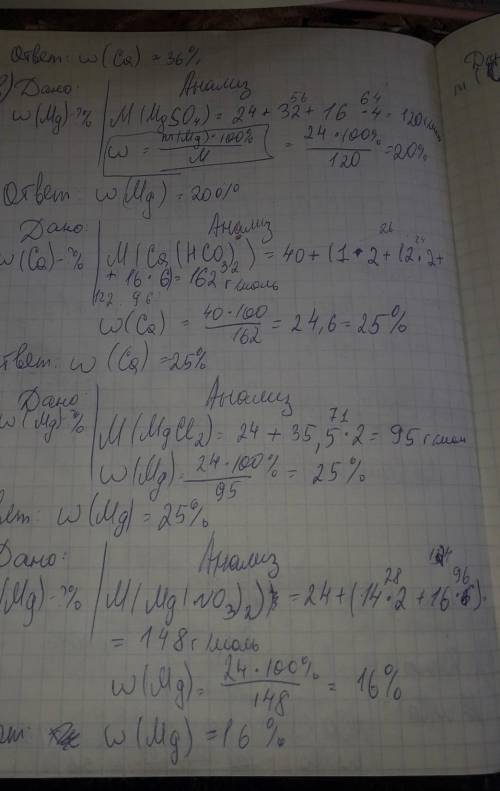 Ответ: w(Ca) = 36%
Дано: Анализ
w(Mg)-?% M(MgSO4) = 24 + 32 + 16 · 4 = 120 г/моль
56 64
w = m(Mg)·100% / M = 24·100% / 120 = 20%
Ответ: w(Mg) = 200%
Дано: Анализ
w(Ca)-?% M(Ca(HCO3)2) = 40 + (1·2 + 12·2 +
26 24
+ 16·6) = 162 г/моль
122 96
w(Ca) = 40·100 / 162 = 24,6 = 25%
твет: w(Ca) = 25%
Дано: Анализ
w(Mg)-?% M(MgCl2) = 24 + 35,5·2 = 95 г/моль
71
w(Mg) = 24·100% / 95 = 25%
вет: w(Mg) = 25%
Дано: Анализ
(Mg)-?% M(Mg(NO3)2) = 24 + (14·2 + 16·6)
28 96
= 148 г/моль
w(Mg) = 24·100% / 148 = 16%
w(Mg) = 16%